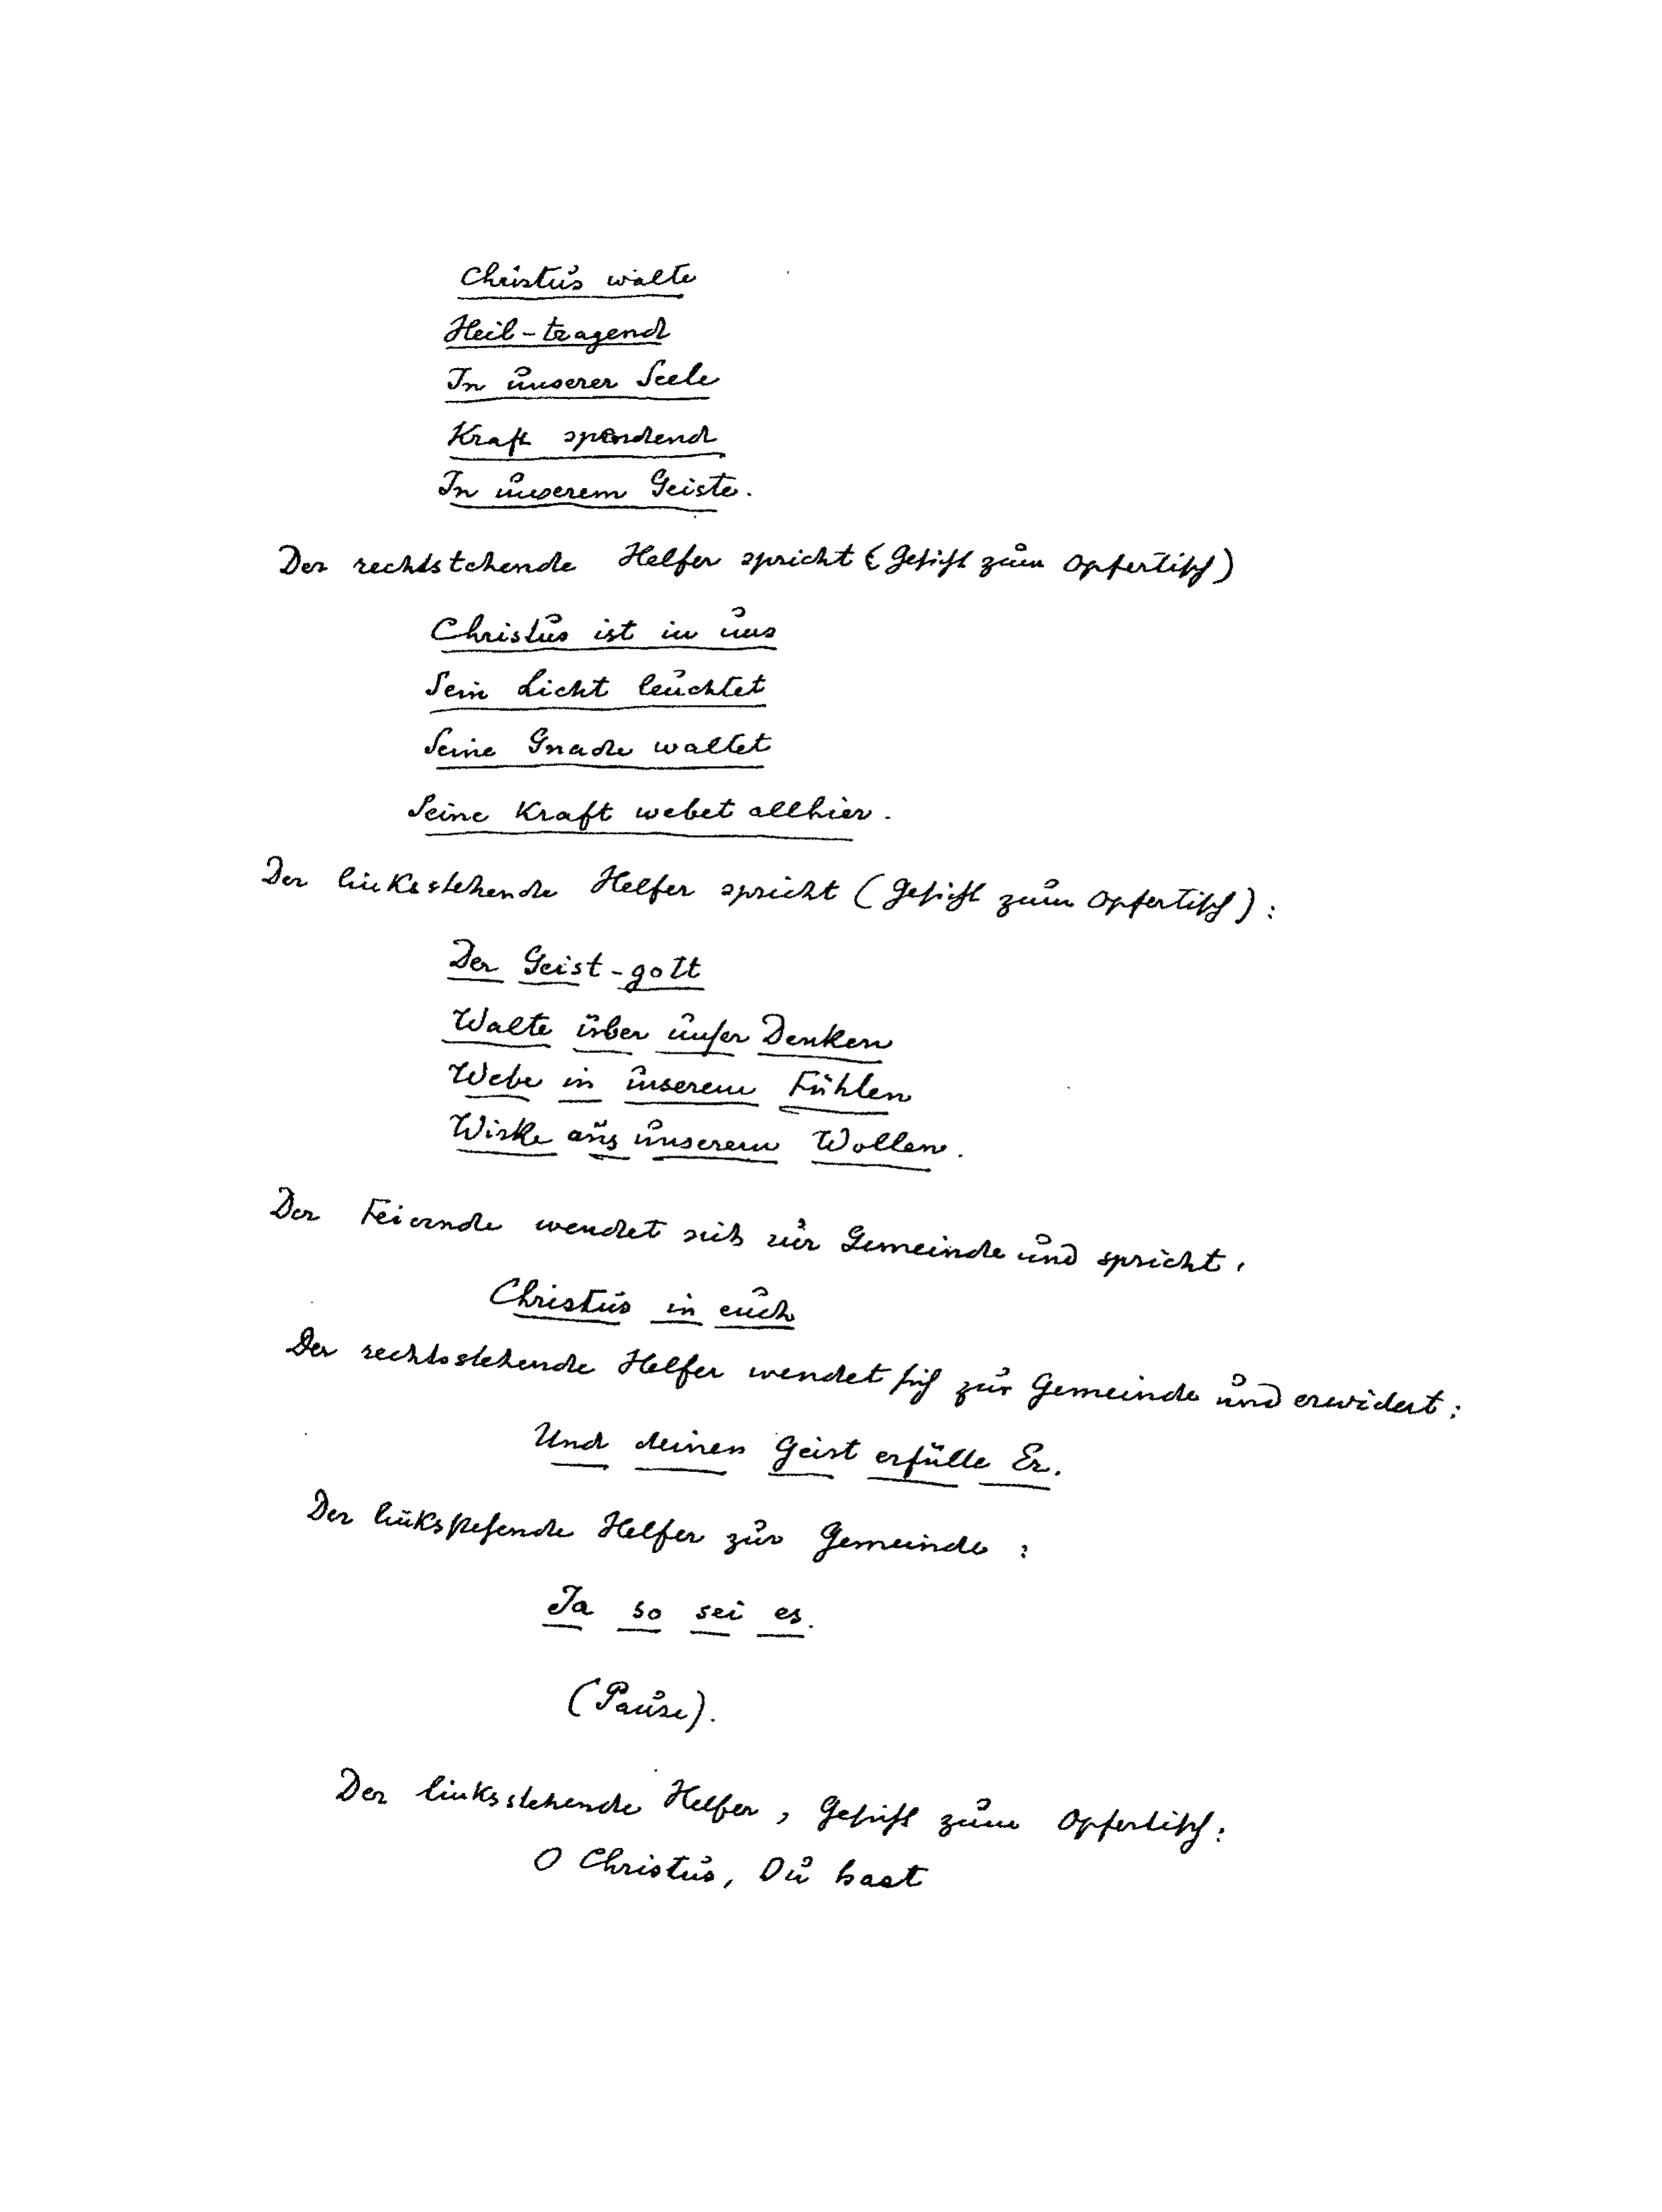 Christus walte
Heil-tragend
In unserer Seele
Kraft spendend
In unserem Geiste.
Der rechtstehende Helfer spricht (Gesicht zum Opfertisch)
Christus ist in uns
Sein Licht leuchtet
Seine Gnade waltet
Seine Kraft webet allhier.
Der linksstehende Helfer spricht (Gesicht zum Opfertisch):
Der Geist-gott
Walte über unser Denken
Webe in unserem Fühlen
Wirke aus unserem Wollen.
Der Feiernde wendet sich zur Gemeinde und spricht,
Christus in euch
Der rechtsstehende Helfer wendet sich zur Gemeinde und erwidert:
Und deinen Geist erfülle Er.
Der linksstehende Helfer zur Gemeinde:
Ja so sei es.
(Pause).
Der linksstehende Helfer, Gesicht zum Opfertisch:
O Christus, Du hast